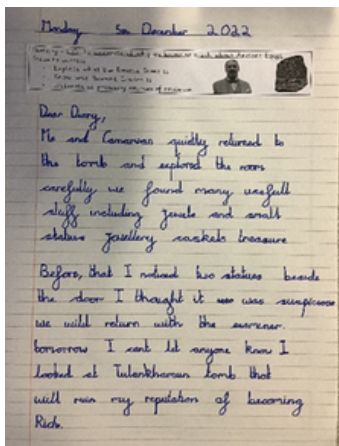 Monday 5th December 2022
Dear Diary,
Me and Carnarvon quietly returned to
the tomb and explored the room
carefully we found many usefull
stuff including jewels and small
statues jewellery caskets treasure
Before, that I noticed two statues beside
the door I thought it was suspicious
we will return with the
tomorrow I cant let anyone know I
looked at Tutankhamun tomb that
will ruin my reputation of becoming
Rich.